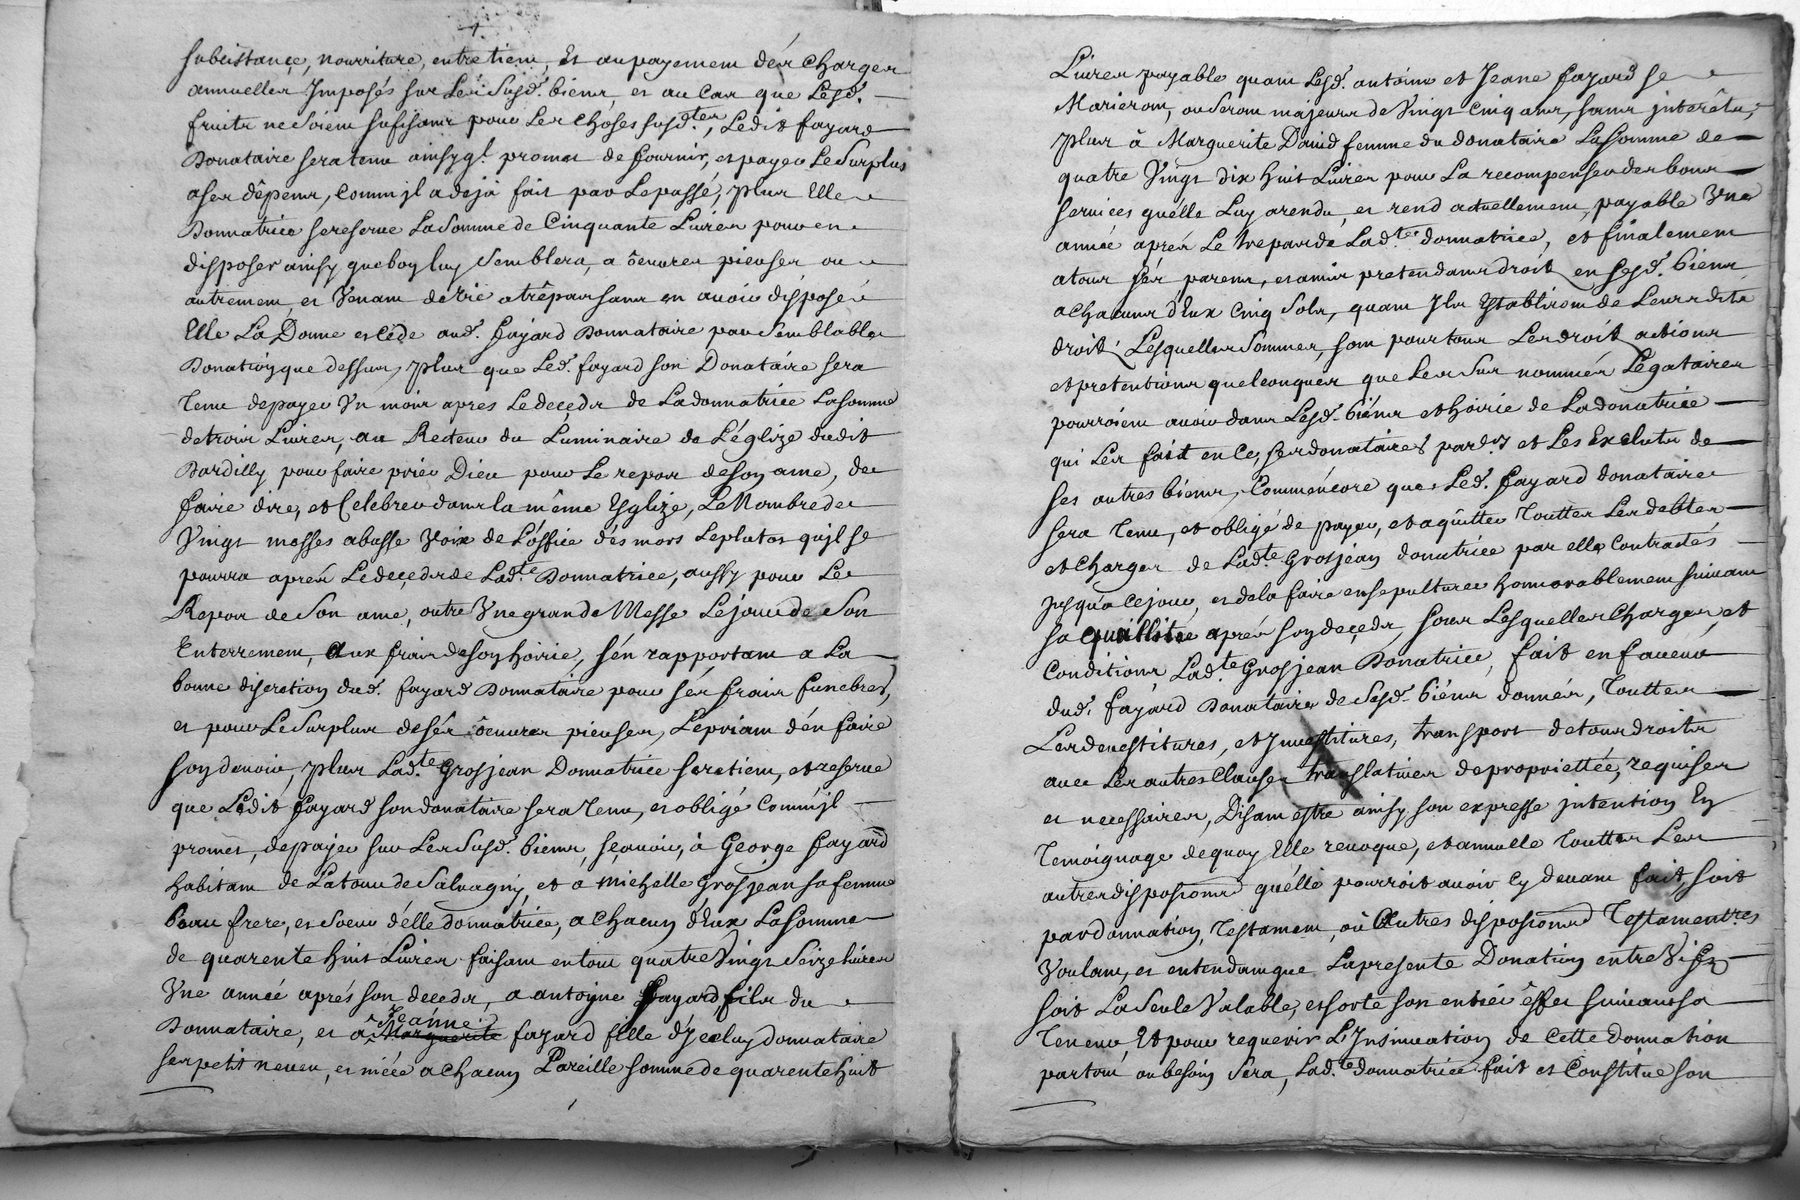 subcistance, nourriture, entretient, Et au payement dés charges
annuelles Jmposés sur Lés Susd. biens, et au Cas que Lesd.
fruits ne soient sufisants pour Les choses susd.tes, Ledit fayard
Donataire sera tenu ainsy q.l promet de fournir, et payer Le Surplus
a ses dêpens, Comm jl a dejà fait par Le passé, plus Elle
Donnatrice se reserve La Somme de Cinquante Livres pour en
disposer ainsy que boy luy Semblera, a oeuvres pieuses ou
autrement, et Venant de vie a trêpas sans en avoir disposé
Elle La Donne et cêde aud. fayard Donnataire par Semblable
Donatioy que dessus, plus que Led. fayard son Donatáire sera
Tenu de payer Vn mois apres Le decedz de La donnatrice La somme
de trois Livres, au Recteur du Luminaire de L'églize dudit
Dardilly pour faire prier Dieu pour Le repos de soy ame, de
faire dire, et Celebrer dans la même Esglize, Le Nombre de
Vingt messes a basse Voix de L'office des mors Le plutos qu'jl se
pourra aprés Le decedz de Lad.te Donnatrice, aussy pour Le
Repos de Son ame, outre Vne grande Messe Le jour de Son
Enterrement, aux frais de soy hoirie, s'én rapportant a La
bonne discretioy dud. fayard Donnataire pour sés frais funebres,
et pour Le Surplus de sés oeuvres pieuses, Le priant d'én faire
soy devoir, plus Lad.te Grosjean Donnatrice se retient, et reserve
que Ledit fayard son donataire sera Tenu, et obligé Comm'jl
promet, de payer sur Les Susd. biens, sçavoir, à George fayard
habitant de La tour de Salvagny, et a michelle Grosjean sa femme
beau frere, et soeur d'élle donnatrice, a chacun d'éux La Somme
de quarente huit Livres faisant en tout quatre Vingt Seize livres
Vne année aprés son decedz, a antoyne fayard, fils du
Donnataire, et a Marguerite Jeanne fayard fille d'Jceluy donnataire
ses petit neveu, et niéce a chacun Pareille somme de quarente huit
Livres payable quant Lesd. antoine et Jeane fayard se
Marieront, ou seront majeurs de Vingt Cinq ans, sans jnterêts,
plus à Marguerite David femme du donataire La Somme de
quatre Vingt dix huit Livres pour La recompenser des bons
services qu'élle Luy a rendu, et rend actuellement, payable Vne
année aprés Le trepas de Lad.te donnatrice, et finalement
a tous sés parens, et amis pretendans droit en sesd. biens
a chacuns d'Eux Cinq Sols, quant Jls Establiront de Leurs dits
droit, Lesquelles Sommes, sont pour tous Les droit actions
et pretentions quelconques que Les Sus nommés Légataires
pourroient avoir dans Lesd. biéns et hoirie de La donatrice
qui Les fait en ce, ses donataires par.rs et Les Exclutz de
ses autres biens, Comm'encore que Led. fayard donataire
sera Tenu, et obligé de payer, et aquitter Touttes Les debtes
et charges de Lad.te Grosjean donatrice par elle Contractés
jusqu'a ce jour, et de la faire ensepulturer honnorablement suivant
sa quallité aprés soy decedz, sous Lesquelles charges, et
Conditions Lad.te Grosjean Donatrice, fait en faveur
dud. fayard Donataire de Sesd. biéns donnés, Touttes
Les devestitures, et jnvestitures, transport de tous droits
avec Les autres Clauses translatives de propriettée, requises
et necessaires, Disant estre ainsy son expresse jntention Ey
Temoignage de quoy Elle revoque, et annulle Touttes Les
autres disposions qu'élle pourroit avoir Cy devant fait, soit
par donnatioy, Testament, où Autres disposions Testament.res
Voulant, et entendant que La presente Donatioy entre Vifs
soit La Seule Valable, et sorte son entier éffet suivant sa
Teneur, Et pour requerir L'Jnsinuatioy de Cette donnation
par tout, ou besoin sera, Lad.te donnatrice fait et Constitue son